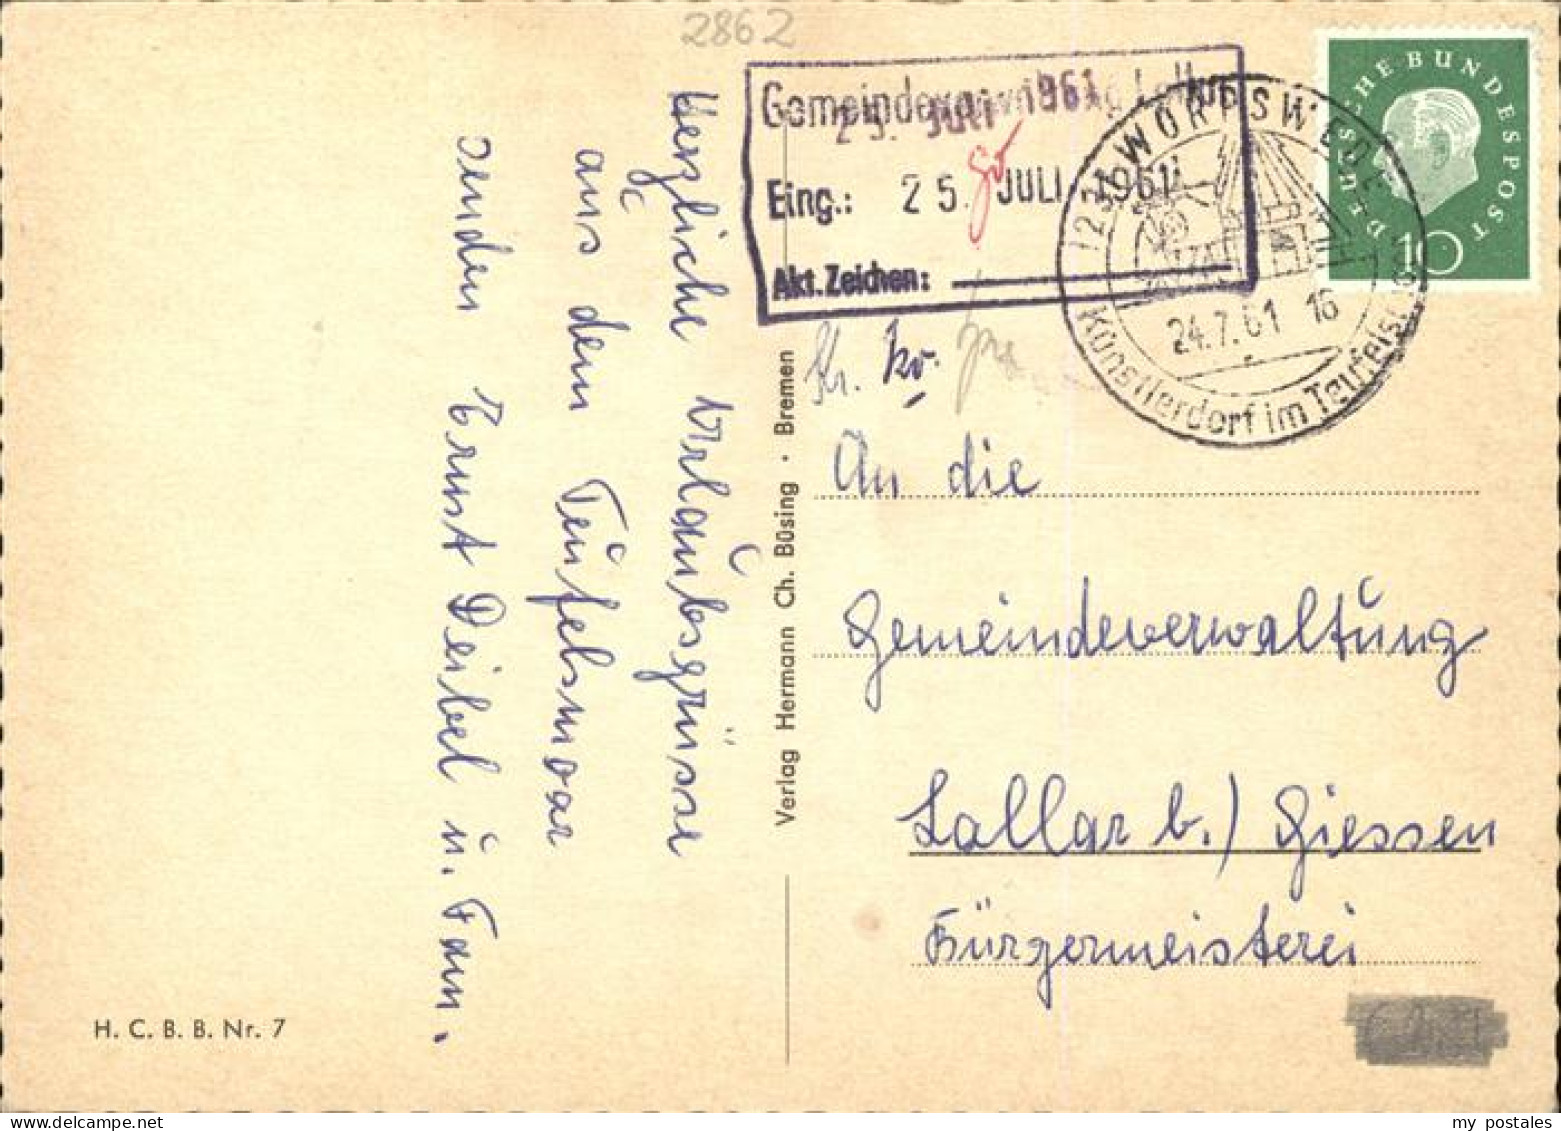 2862
Gemeindeverwaltung Lollar
25. JULI 1961
Eing.: 25. JULI 1961
Akt. Zeichen:
WORPSWEDE
24.7.61 16
Künstlerdorf im Teufelsmoor
DEUTSCHE BUNDESPOST
10
Herzliche Urlaubsgrüsse
aus dem Teufelsmoor
senden Ernst Deibel u. Fam.
Verlag Hermann Ch. Büsing · Bremen
An die
Gemeindeverwaltung
Lollar b./ Giessen
Bürgermeisterei
H. C. B. B. Nr. 7
my postales